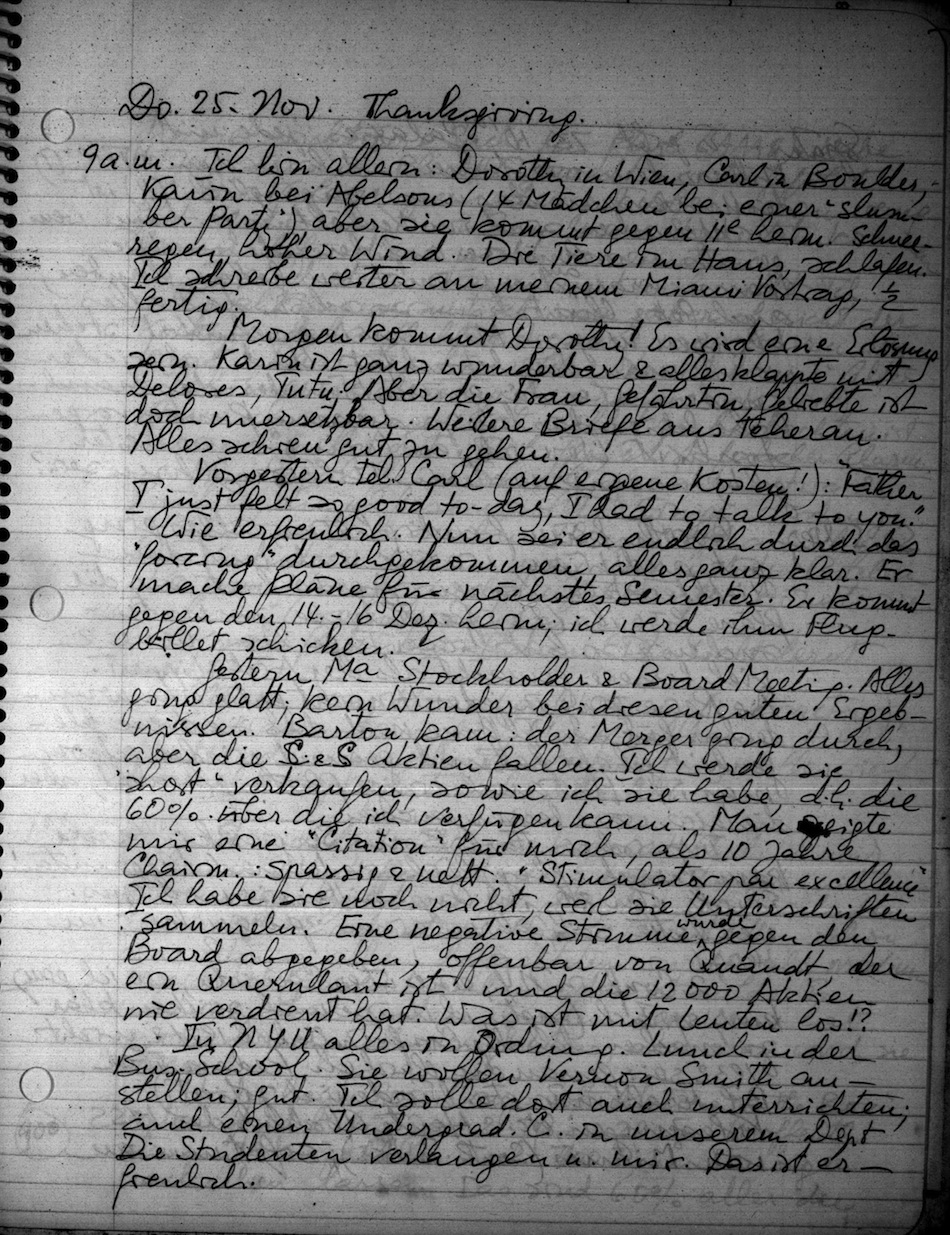 Do. 25. Nov. Thanksgiving.
9 a.m. Ich bin allein: Dorothy in Wien, Carl in Boulder,
Karin bei Abelsons (14 Mädchen bei einer "slum-
ber Party"), aber sie kommt gegen 11e heim. Schnee-
regen, hoher Wind. Die Tiere im Haus, schlafen.
Ich schreibe weiter an meinem Miami Vortrag, ½
fertig.
Morgen kommt Dorothy! Es wird eine Erlösung
sein. Karin ist ganz wunderbar & alles klappte mit
Delores, Tutu. Aber die Frau, Gefährtin, Geliebte ist
doch unersetzbar. Weitere Briefe aus Teheran.
Alles schien gut zu gehen.
Vorgestern Tel. Carl (auf eigene Kosten!): "Father
I just felt so good to-day, I had to talk to you."
Wie erfreulich. Nun sei er endlich durch das
"forcing" durchgekommen, alles ganz klar. Er
mache Pläne für nächstes Semester. Er kommt
gegen den 14.-16 Dez. heim; ich werde ihm Flug-
billet schicken.
Gestern Ma Stockholder & Board Meeting. Alles
ging glatt; kein Wunder bei diesen guten Ergeb-
nissen. Barton kam: der Merger ging durch,
aber die S&S Aktien fallen. Ich werde sie
"short" verkaufen, sowie ich sie habe, d.h. die
60% über die ich verfügen kann. Man zeigte
mir eine "Citation" für mich, als 10 Jahre
Chairm.: spassig & nett. "Stimulator par excellence"
Ich habe sie noch nicht, weil sie Unterschriften
sammeln. Eine negative Stimme wurde gegen den
Board abgegeben, offenbar von Quandt, der
ein Querulant ist und die 12000 Aktien
nie verdient hat. Was ist mit Leuten los!?
In NYU alles in Ordnung. Lunch in der
Bus. School. Sie wollen Vernon Smith an-
stellen; gut. Ich solle dort auch unterrichten;
auch einen Undergrad. C. in unserem Dept
Die Studenten verlangen n. mir. Das ist er-
freulich.